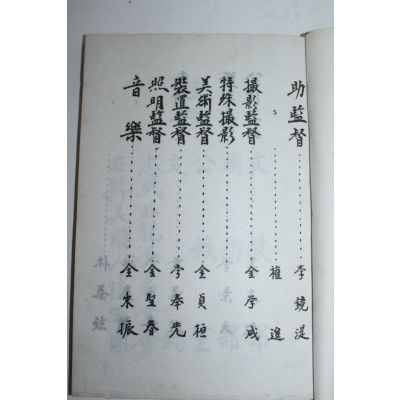 助監督………李鏡湜
權進
撮影監督………金学成
特殊撮影………
美術監督………金貞桓
裝置監督………李奉先
照明監督………金聖春
音樂………金東振